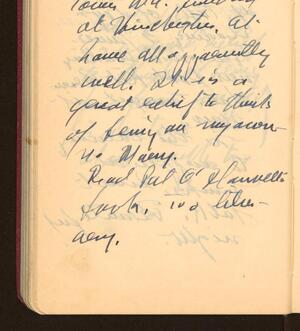 at Winchester. At
home all apparently
well. It is a
great relief to think
of being on my own
no Money.
Read Pat O'
book. Too liter-
ary.